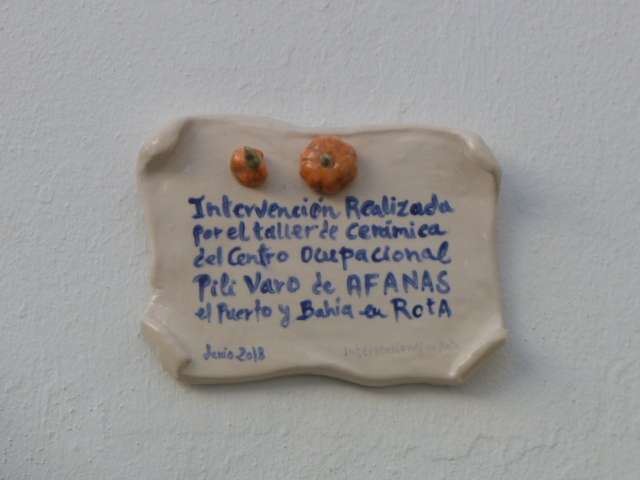 Intervención Realizada
por el taller de cerámica
del Centro Ocupacional
Pili Varo de AFANAS
el Puerto y Bahía en RotA
Junio 2018